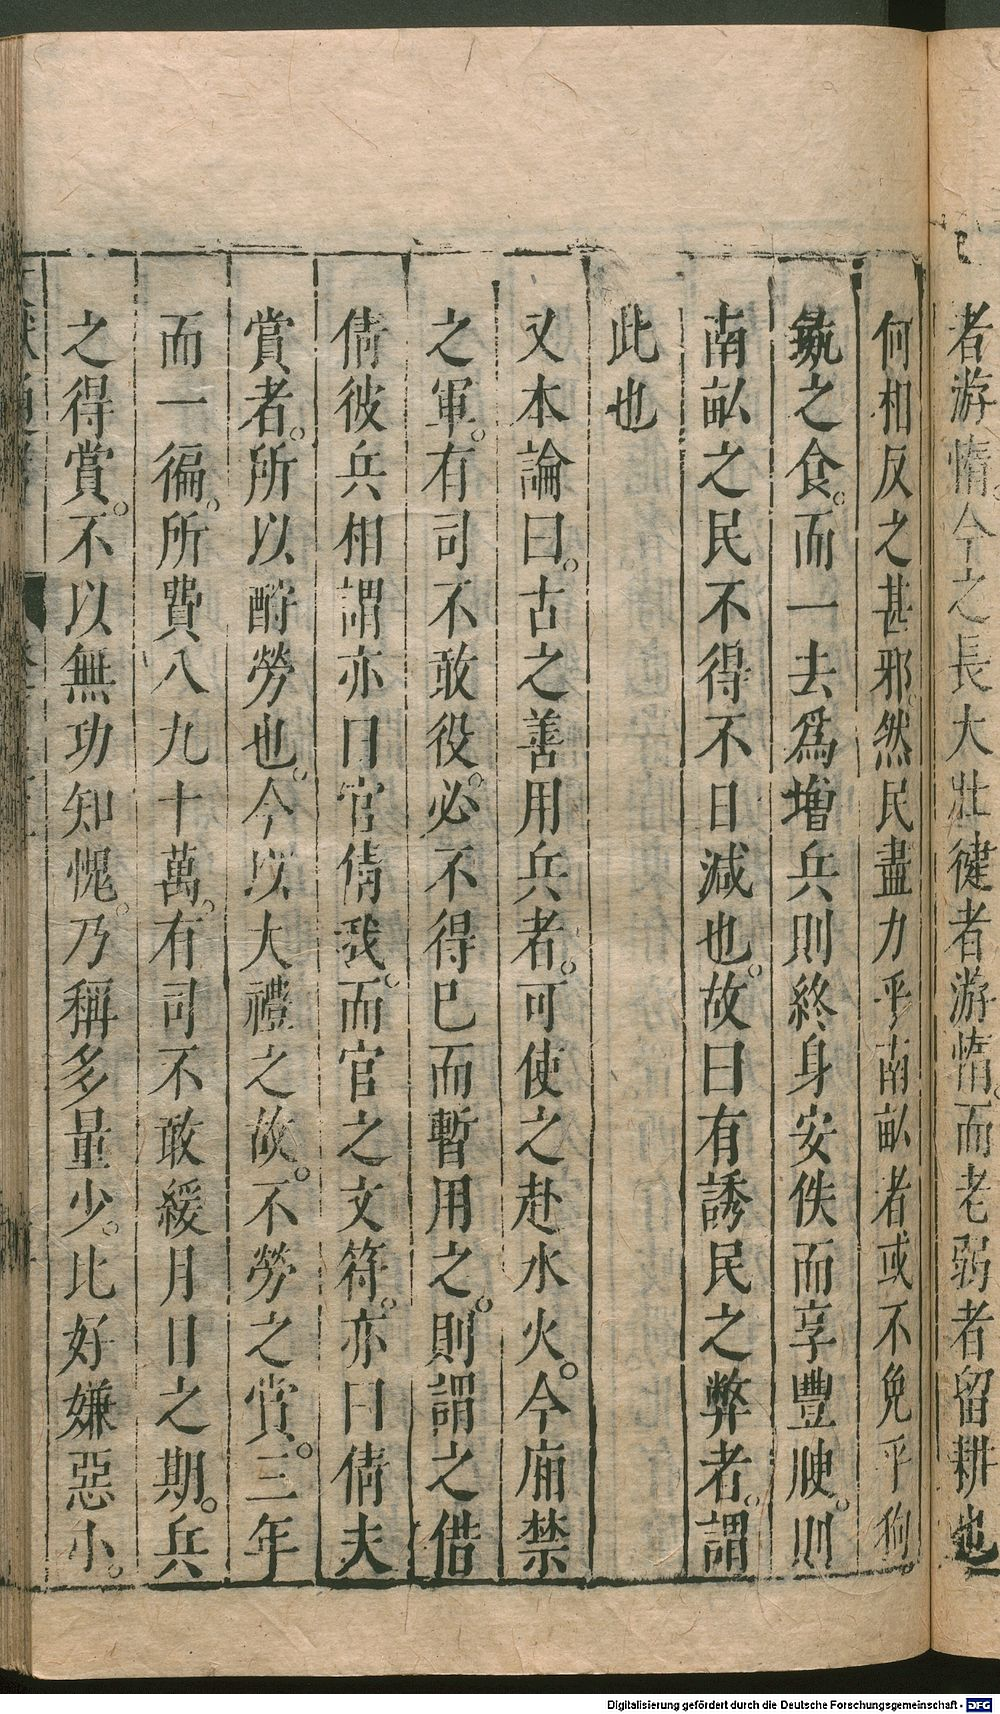 者游惰。今之長大壯健者游惰。而老弱者留耕也
何相反之甚邪。然民盡力乎南畝者或不免乎狗
彘之食。而一去爲增兵則終身安佚而享豐腴。則
南畝之民不得不日減也。故曰有誘民之弊者。謂
此也
又本論曰。古之善用兵者。可使之赴水火。今廂禁
之軍。有司不敢役。必不得已而暫用之。則謂之借
倩彼兵相謂亦曰官倩我。而官之文符。亦曰倩夫
賞者。所以酧勞也。今以大禮之故。不勞之賞。三年
而一徧。所費八九十萬。有司不敢緩月日之期。兵
之得賞。不以無功知愧。乃稱多量少。比好嫌惡小。
Digitalisierung gefördert durch die Deutsche Forschungsgemeinschaft - DFG